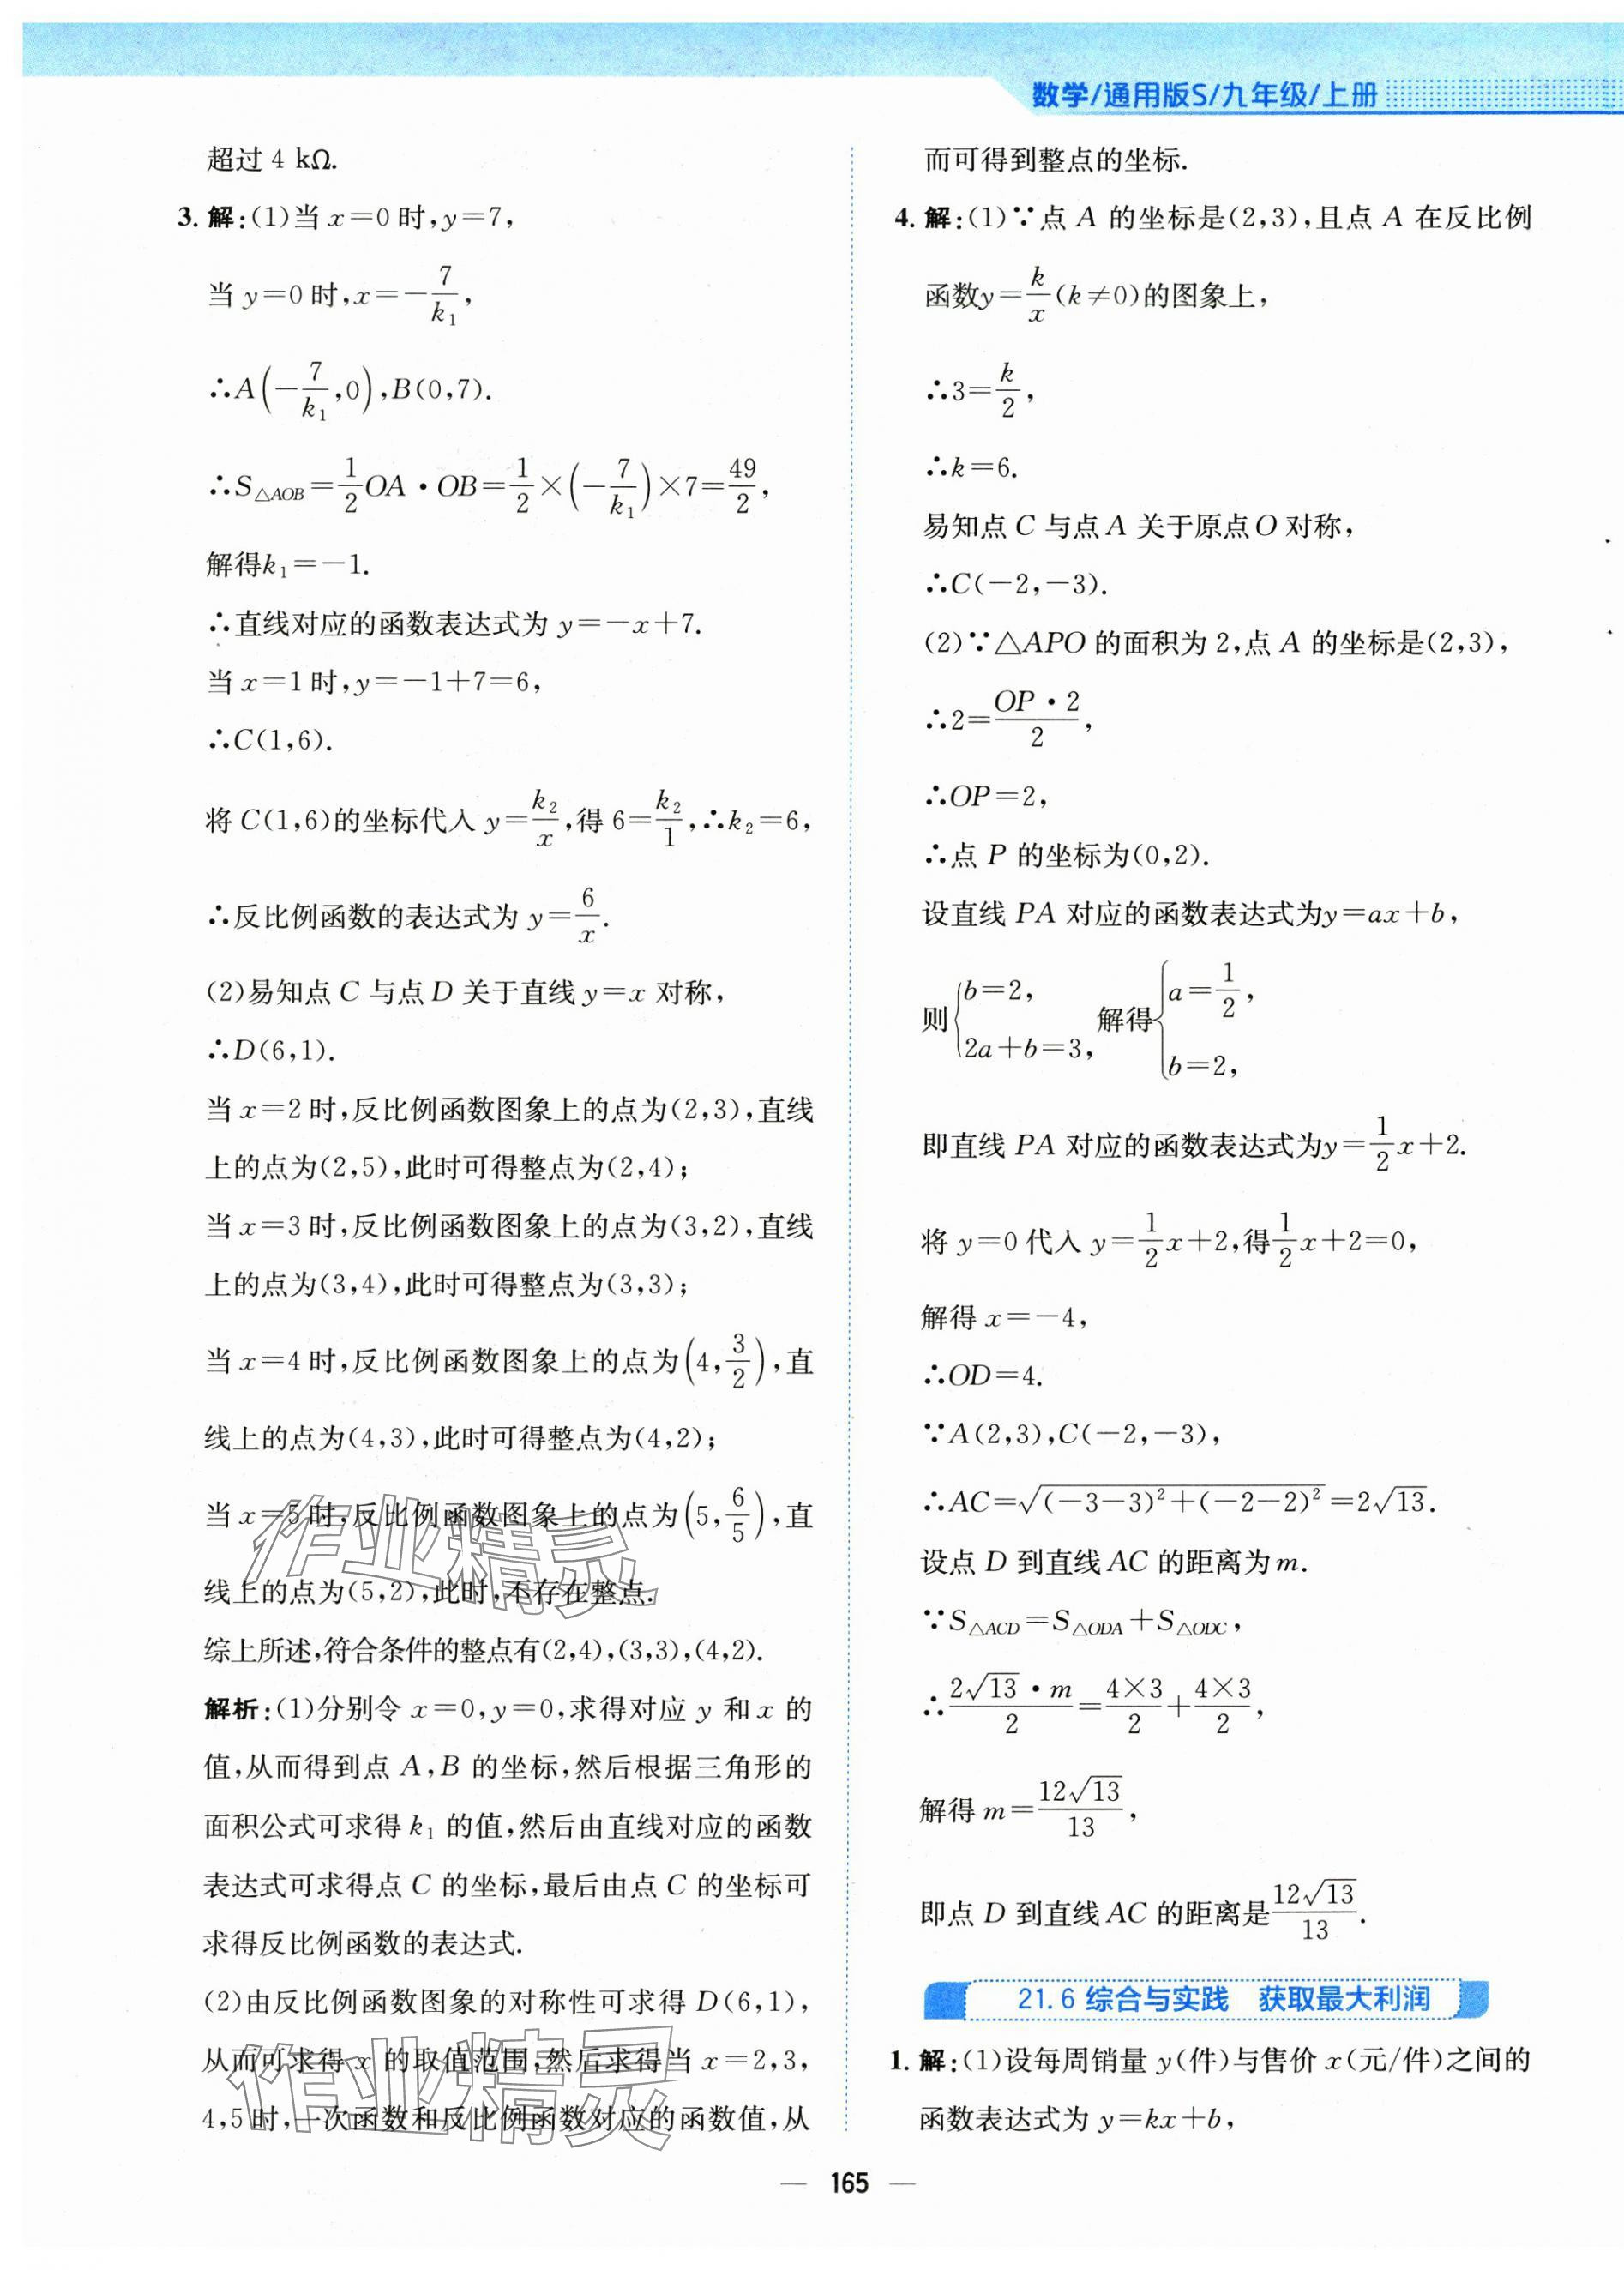 数学/通用版S/九年级/上册
超过 4 kΩ.
3. 解:(1)当 x=0 时,y=7,
当 y=0 时,x=-7/k₁,
∴A(-7/k₁,0),B(0,7).
∴S△AOB=1/2OA·OB=1/2×(-7/k₁)×7=49/2,
解得k₁=-1.
∴直线对应的函数表达式为 y=-x+7.
当 x=1 时,y=-1+7=6,
∴C(1,6).
将 C(1,6)的坐标代入 y=k₂/x,得 6=k₂/1,∴k₂=6,
∴反比例函数的表达式为 y=6/x.
(2)易知点 C 与点 D 关于直线 y=x 对称,
∴D(6,1).
当 x=2 时,反比例函数图象上的点为(2,3),直线
上的点为(2,5),此时可得整点为(2,4);
当 x=3 时,反比例函数图象上的点为(3,2),直线
上的点为(3,4),此时可得整点为(3,3);
当 x=4 时,反比例函数图象上的点为(4,3/2),直
线上的点为(4,3),此时可得整点为(4,2);
当 x=5 时,反比例函数图象上的点为(5,6/5),直
线上的点为(5,2),此时,不存在整点.
综上所述,符合条件的整点有(2,4),(3,3),(4,2).
解析:(1)分别令 x=0,y=0,求得对应 y 和 x 的
值,从而得到点 A,B 的坐标,然后根据三角形的
面积公式可求得 k₁ 的值,然后由直线对应的函数
表达式可求得点 C 的坐标,最后由点 C 的坐标可
求得反比例函数的表达式.
(2)由反比例函数图象的对称性可求得 D(6,1),
从而可求得 x 的取值范围,然后求得当 x=2,3,
4,5 时,一次函数和反比例函数对应的函数值,从
而可得到整点的坐标.
4. 解:(1)∵点 A 的坐标是(2,3),且点 A 在反比例
函数y=k/x(k≠0)的图象上,
∴3=k/2,
∴k=6.
易知点 C 与点 A 关于原点 O 对称,
∴C(-2,-3).
(2)∵△APO 的面积为 2,点 A 的坐标是(2,3),
∴2=OP·2/2,
∴OP=2,
∴点 P 的坐标为(0,2).
设直线 PA 对应的函数表达式为y=ax+b,
则{b=2, 2a+b=3, 解得{a=1/2, b=2,
即直线 PA 对应的函数表达式为y=1/2x+2.
将 y=0 代入 y=1/2x+2,得1/2x+2=0,
解得 x=-4,
∴OD=4.
∵A(2,3),C(-2,-3),
∴AC=√((-3-3)²+(-2-2)²)=2√13.
设点 D 到直线 AC 的距离为 m.
∵S△ACD=S△ODA+S△ODC,
∴2√13·m/2=4×3/2+4×3/2,
解得 m=12√13/13,
即点 D 到直线 AC 的距离是12√13/13.
21.6 综合与实践 获取最大利润
1. 解:(1)设每周销量 y(件)与售价 x(元/件)之间的
函数表达式为 y=kx+b,
作业精灵
作业精灵
— 165 —